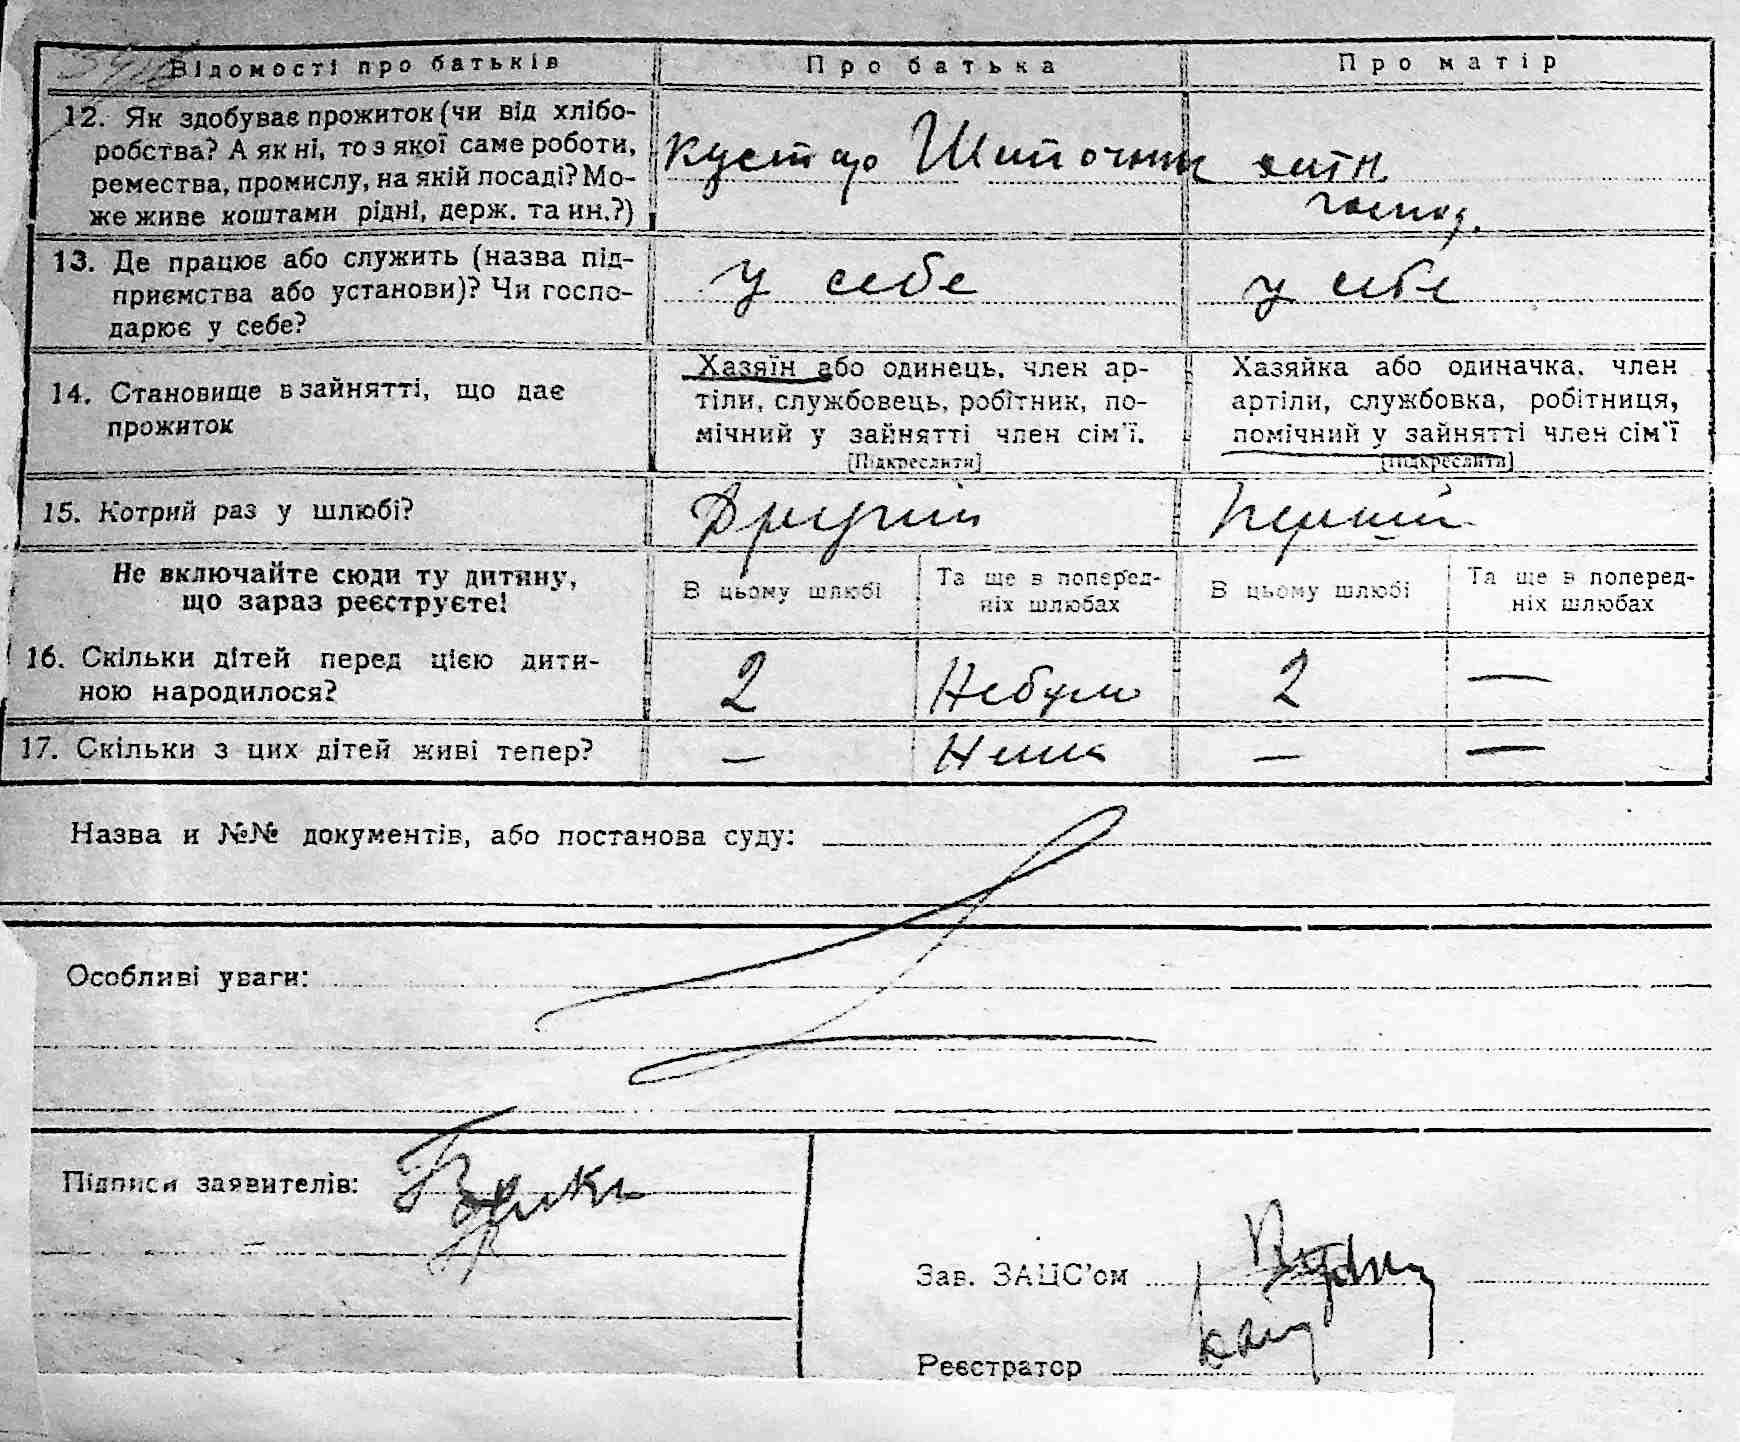 Відомості про батьків
Про батька
Про матір
12. Як здобуває прожиток (чи від хлібо-
робства? А як ні, то з якої саме роботи,
ремества, промислу, на якій посаді? Мо-
же живе коштами рідні, держ. та ин.?)
Кустар
господ.
13. Де працює або служить (назва під-
приємства або установи)? Чи госпо-
дарює у себе?
у себе
у себе
14. Становище в зайнятті, що дає
прожиток
Хазяїн або одинець, член ар-
тіли, службовець, робітник, по-
мічний у зайнятті член сім'ї.
[Підкреслити]
Хазяйка або одиначка, член
артіли, службовка, робітниця,
помічний у зайнятті член сім'ї
[Підкреслити]
15. Котрий раз у шлюбі?
Другий
Перший
Не включайте сюди ту дитину,
що зараз реєструєте!
В цьому шлюбі
Та ще в поперед-
ніх шлюбах
В цьому шлюбі
Та ще в поперед-
ніх шлюбах
16. Скільки дітей перед цією дити-
ною народилося?
2
Небуло
2
—
17. Скільки з цих дітей живі тепер?
—
Нема
—
—
Назва и №№ документів, або постанова суду:
Особливі уваги:
Підписи заявителів:
Зав. ЗАЦС'ом
Реєстратор